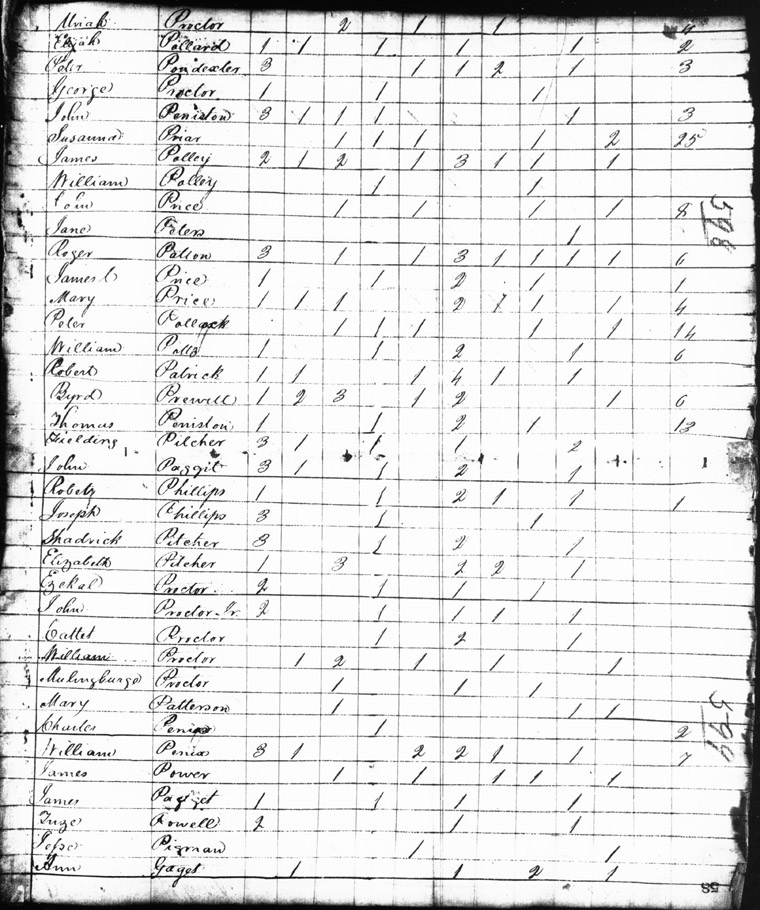 Uriah Proctor 2 1 1 4
Pollard 1 1 1 1 1 2
Peter Poindexter 3 1 1 2 1 3
George Proctor 1 1 1
John Peniston 3 1 1 1 1 3
Susanna Priar 1 1 1 1 2 25
James Polley 2 1 2 1 3 1 1 1
William Polley 1 1
John Price 1 1 1 1 8
Jane Peters 1
Roger Patton 3 1 1 3 1 1 1 1 6
James C Price 1 1 2 1 1
Mary Price 1 1 1 2 1 1 4
Peter Pollack 1 1 1 1 1 14
William Potts 1 1 2 1 6
Robert Patrick 1 1 1 4 1 1
Byrd Prewill 1 2 3 1 2 1 6
Thomas Peniston 1 1 2 1 13
Fielding Pilcher 3 1 1 1 2
John Paggit 3 1 1 2 1
Robert Phillips 1 1 2 1 1 1
Joseph Phillips 3 1 1
Shadrick Pilcher 3 1 2 1
Elizabeth Pilcher 1 3 2 2 1
Ezekal Proctor 2 1 1 1
John Proctor Jr. 2 1 1 1 1
Proctor 1 2 1
William Proctor 1 2 1 1 1
Proctor 1 1 1
Mary Patterson 1 1 1
Charles Penix 1 2
William Penix 3 1 2 2 1 1 7
James Power 1 1 1 1 1
James Padget 1 1 1 1
Powell 2 1 1
Jesse Pigman 1 1
Ann Gaget 1 1 2 1
598
599
58